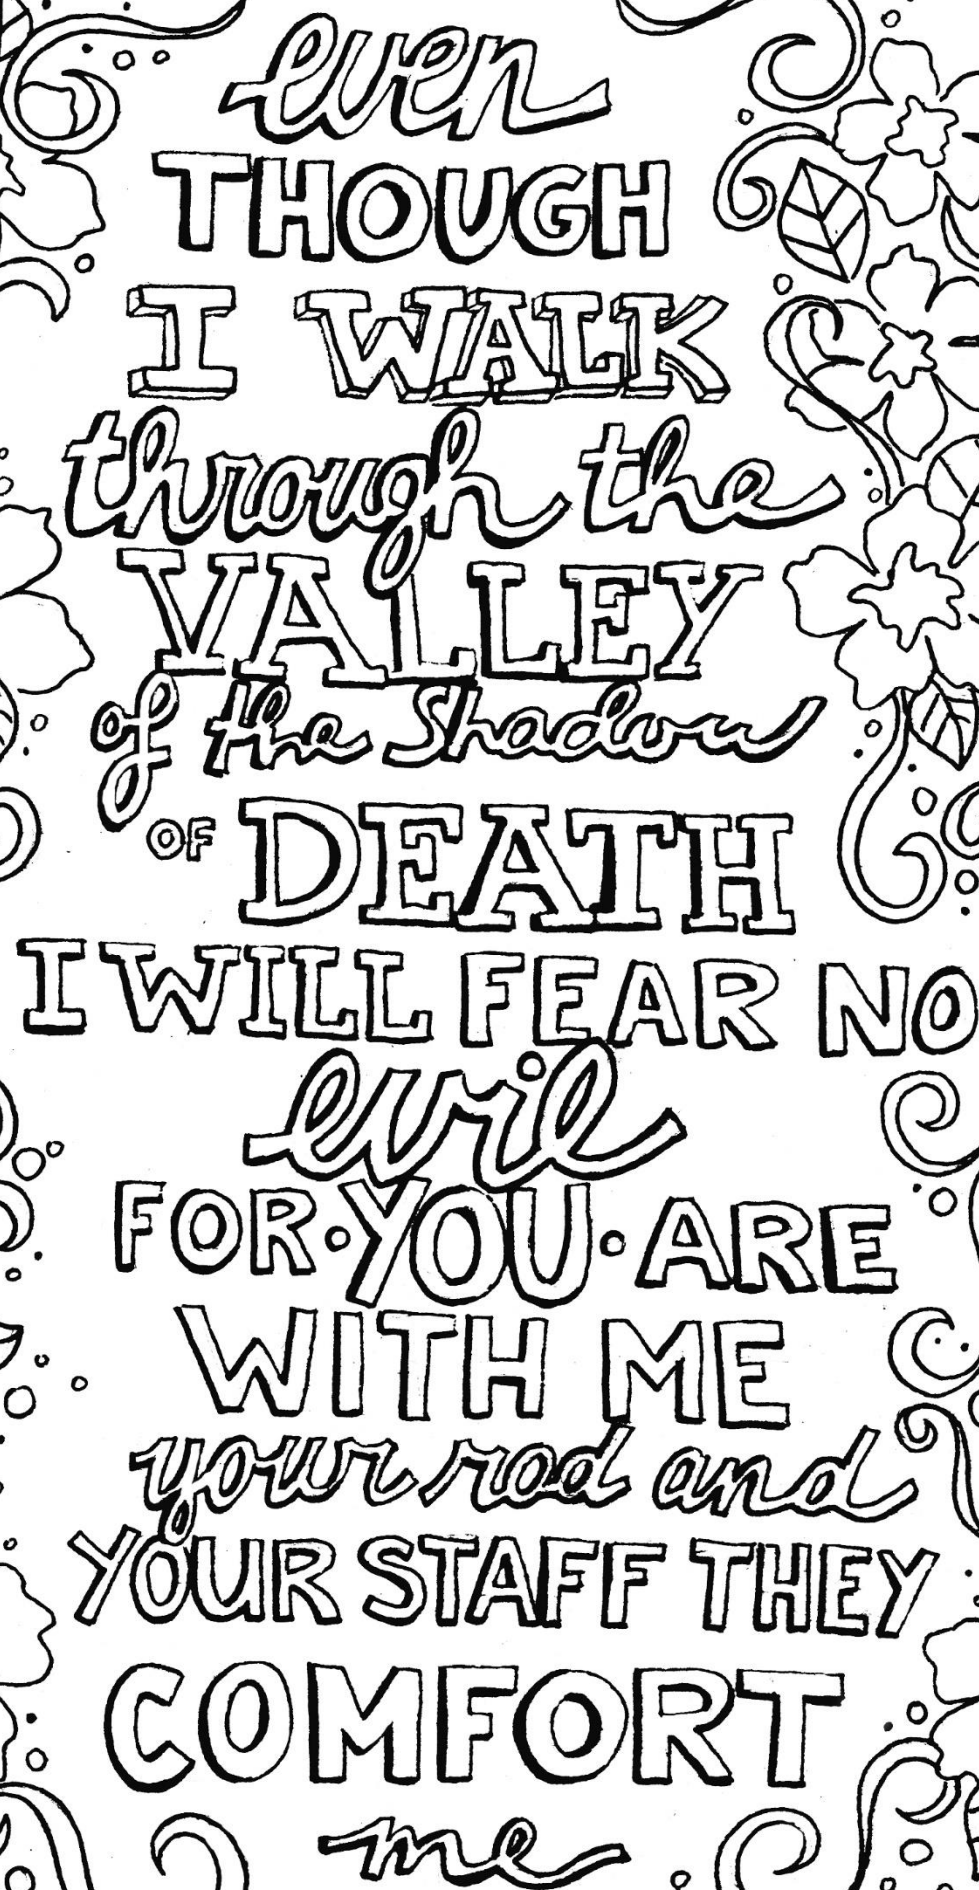 even
THOUGH
I WALK
through the
VALLEY
of the Shadow
OF DEATH
I WILL FEAR NO
evil
FOR·YOU·ARE
WITH ME
your rod and
YOUR STAFF THEY
COMFORT
me